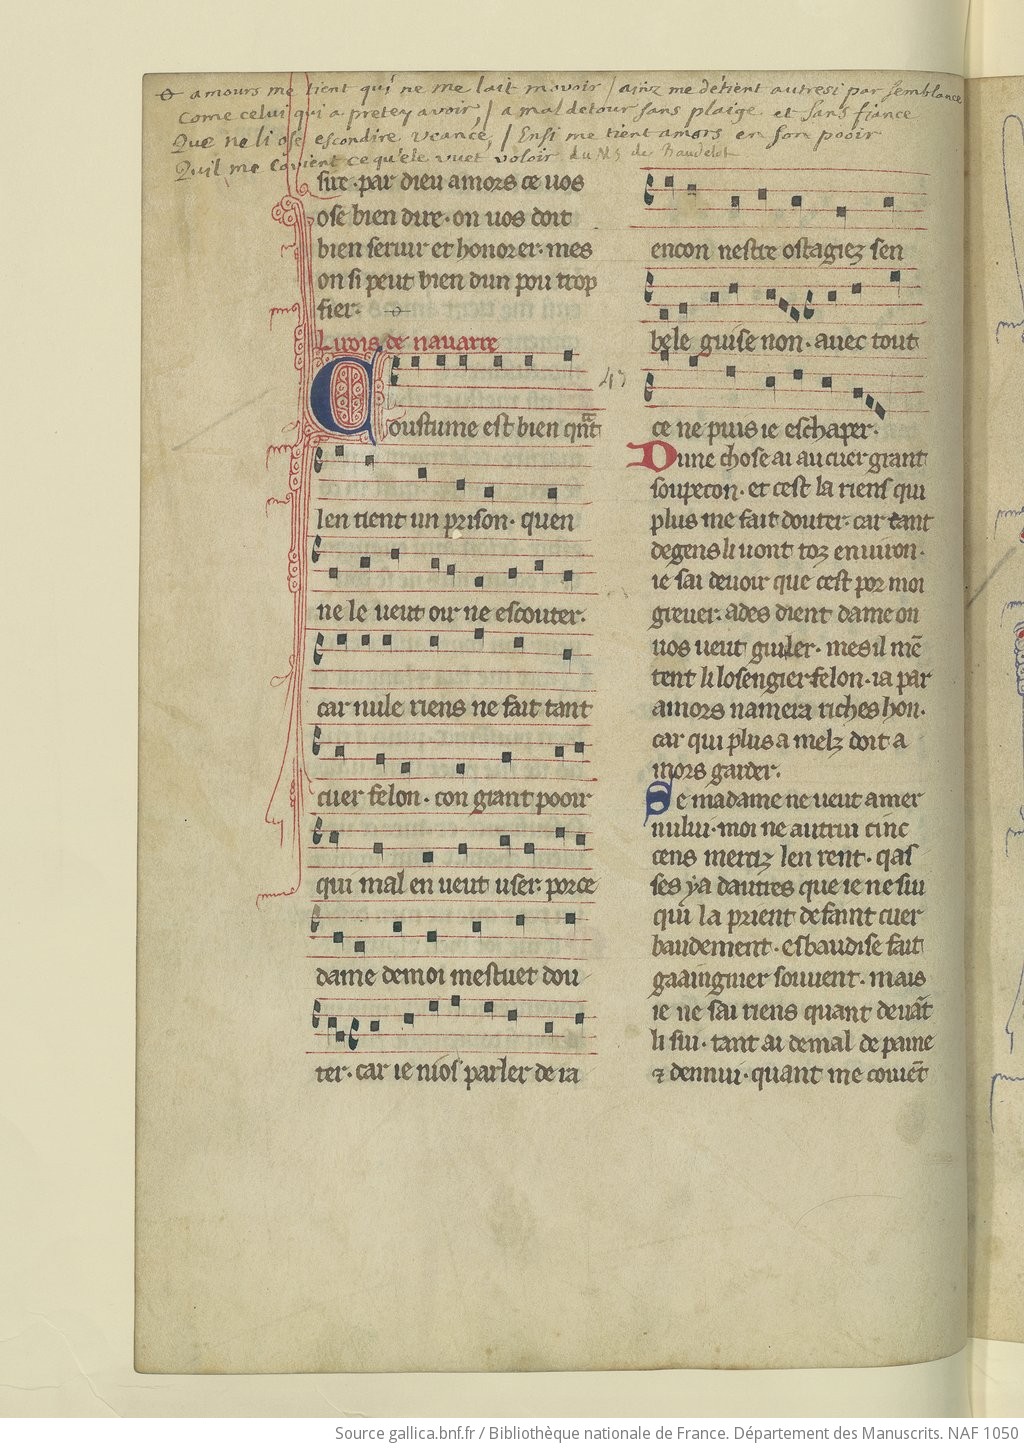 amours me tient qui ne me lait movoir / ainz me detient autresi par semblance
Come celui qui a pretey avoir / a mal detour sans plaige et sans fiance
Que ne li ose escondire veance / Ensi me tient amors en son pooir
Quil me covient ce qu'ele vuet voloir du MS de Baudelot
sire. par dieu amors ce uos
ose bien dire. on uos doit
bien seruir et honorer. mes
on si peut bien dun pou trop
fier.
Li rois de nauarre
Coustume est bien qũt
43
len tient un prison. quen
ne le ueut oir ne escouter.
car nule riens ne fait tant
cuer felon. con grant pooir
qui mal en ueut user. porce
dame de moi mestuet dou
ter. car ie nios parler de ra
encon nestre ostagiez sen
bele guise non. auec tout
ce ne puis ie eschaper.
Dune chose ai au cuer grant
soupecon. et cest la riens qui
plus me fait douter. car tant
de gens li uont toz enuiron.
ie sai deuoir que cest por moi
greuer. ades dient dame on
uos ueut guiler. mes il mẽ
tent li losengier felon. ia par
amors namera riches hon.
car qui plus a melz doit a
mors garder.
Se ma dame ne ueut amer
nului. moi ne autrui cinc
cens merciz len rent. qas
ses ya dautres que ie ne sui
qui la prient de faint cuer
baudement. esbaudise fait
gaaingnier souuent. mais
ie ne sai riens quant deuãt
li sui. tant ai de mal de paine
⁊ dennui. quant me couiẽt
Source gallica.bnf.fr / Bibliothèque nationale de France. Département des Manuscrits. NAF 1050